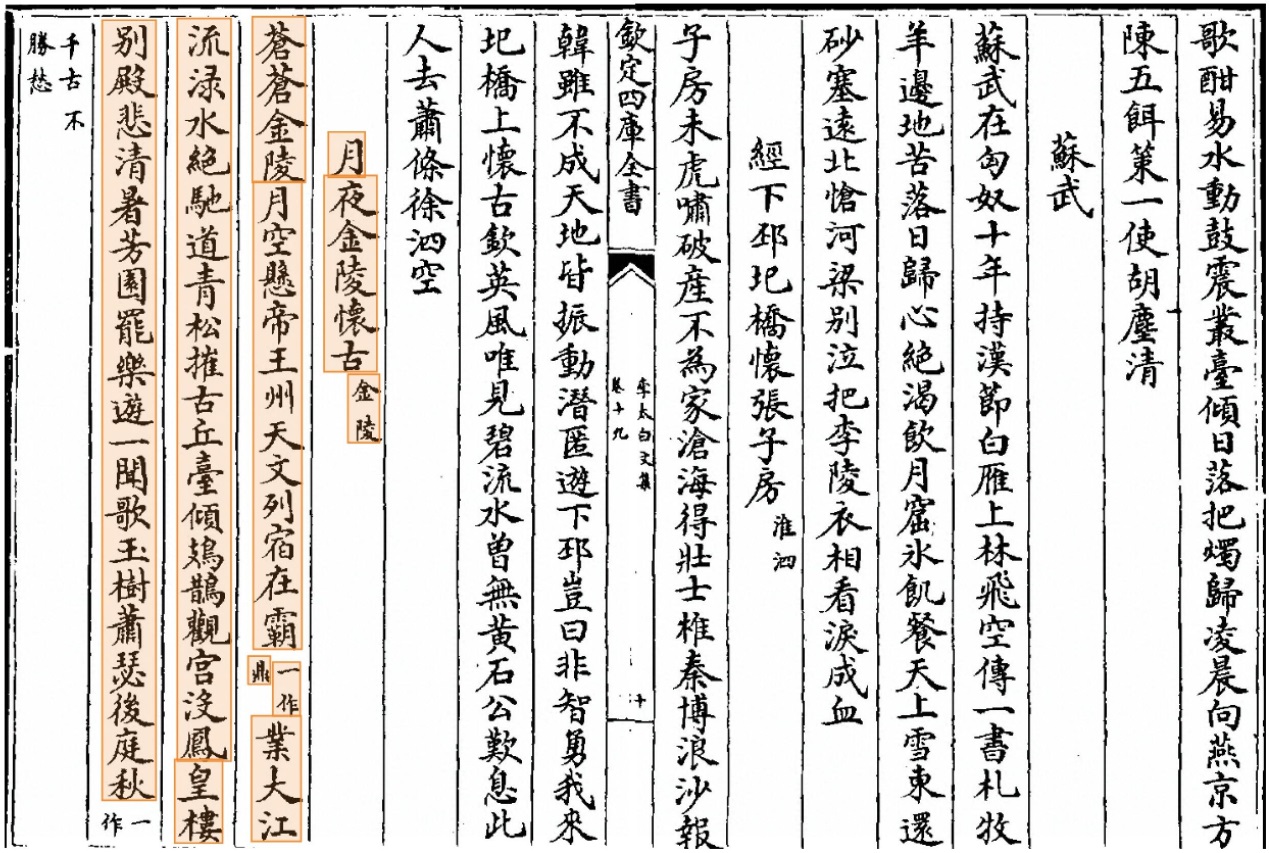 歌酣易水動鼓震叢臺傾日落把燭歸凌晨向燕京方
陳五餌策一使胡塵清
蘇武
蘇武在匈奴十年持漢節白雁上林飛空傳一書札牧
羊邊地苦落日歸心絶渴飲月窟氷飢餐天上雪東還
砂塞遠北愴河梁别泣把李陵衣相看淚成血
經下邳圯橋懷張子房 淮泗
子房未虎嘯破産不為家滄海得壯士椎秦博浪沙報
欽定四庫全書
李太白文集
卷十九
十
韓雖不成天地皆振動潛匿遊下邳豈曰非智勇我來
圯橋上懷古欽英風唯見碧流水曽無黄石公歎息此
人去蕭條徐泗空
月夜金陵懷古 金陵
蒼蒼金陵月空懸帝王州天文列宿在霸一作鼎業大江
流渌水絶馳道青松摧古丘臺傾鳷鵲觀宫没鳳皇樓
别殿悲清暑芳園罷樂遊一聞歌玉樹蕭瑟後庭秋一作
千古不
勝愁